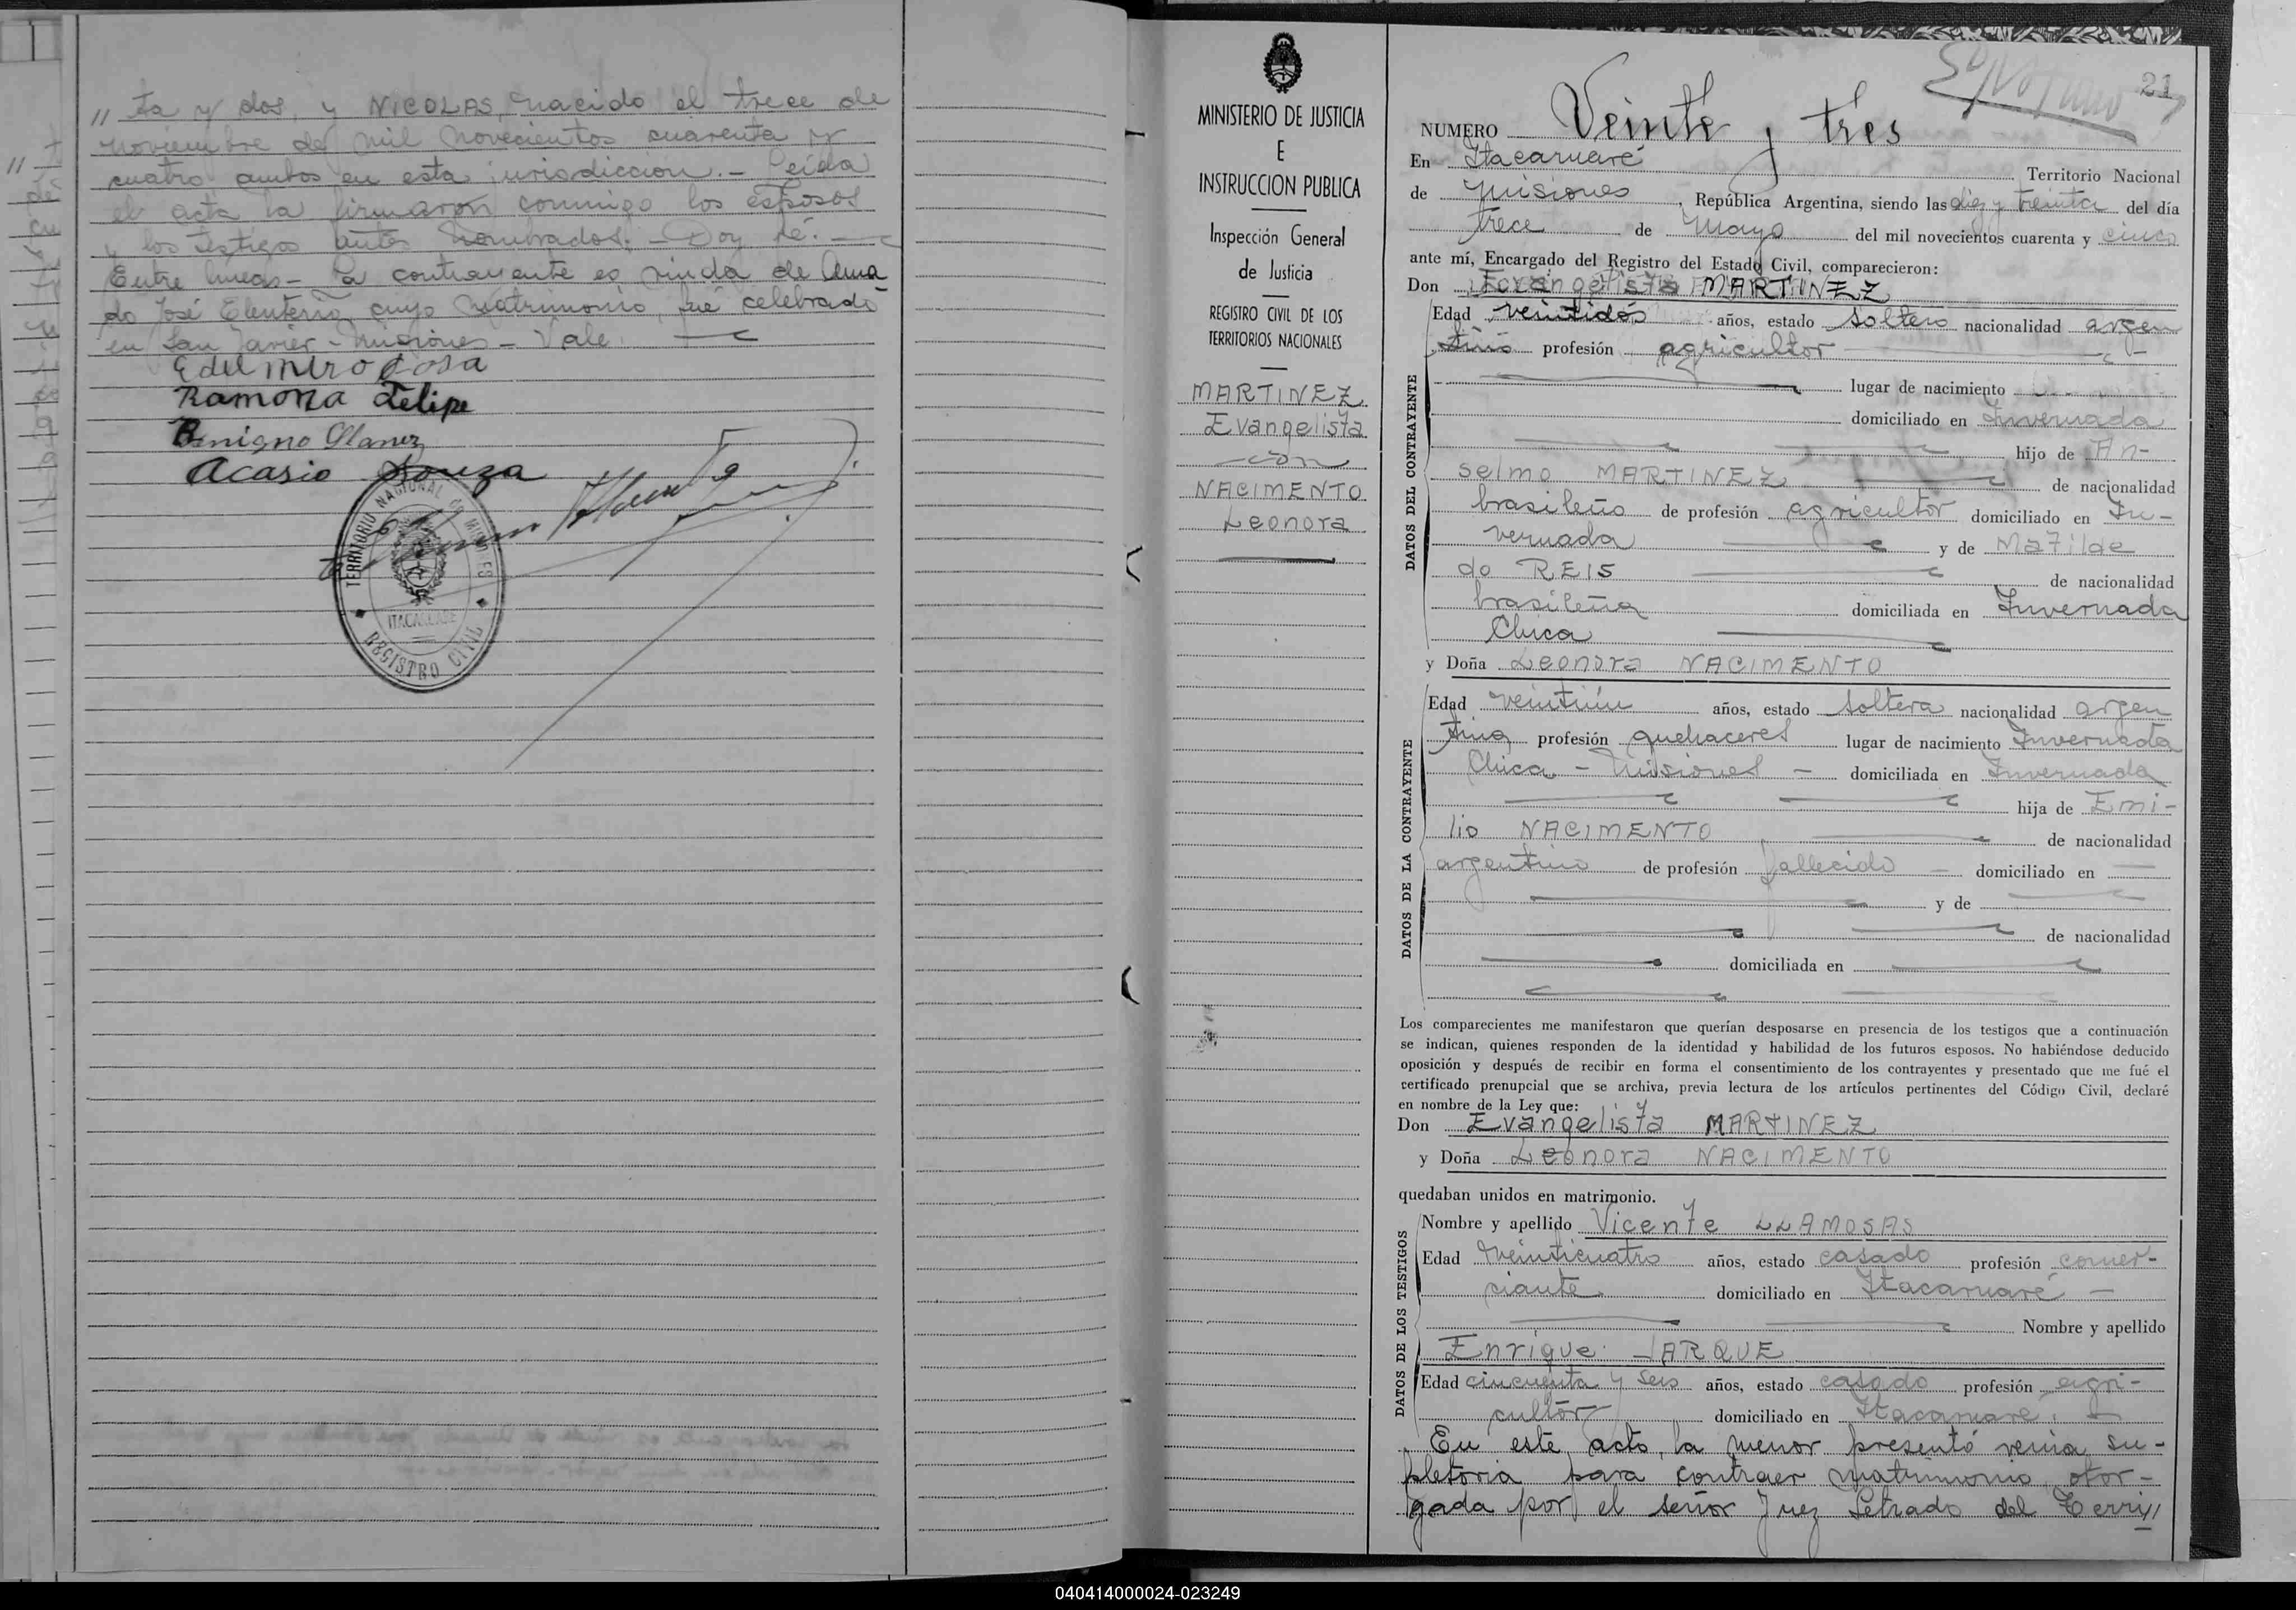 // ta y dos, y NICOLAS, nacido el trece de
noviembre de mil novecientos cuarenta y
cuatro ambos en esta jurisdiccion.- Leida
el acta la firmaron conmigo los esposos
y los testigos antes nombrados.- Doy fé.-
Entre lineas- la contrayente es viuda de Ama
do José Eleuterio, cuyo matrimonio, fué celebrado
en San Javier - Misiones - Vale.
Edelmiro
Ramona Felipe
Benigno
Acasio Souza
TERRITORIO NACIONAL DE MISIONES
ITACARUARE
REGISTRO CIVIL
MINISTERIO DE JUSTICIA
E
INSTRUCCION PUBLICA
Inspección General
de Justicia
REGISTRO CIVIL DE LOS
TERRITORIOS NACIONALES
MARTINEZ
Evangelista
con
NACIMENTO
Leonora
21
NUMERO Veinte y tres
En Itacaruaré Territorio Nacional
de Misiones, República Argentina, siendo las diez y treinta del día
trece de Mayo del mil novecientos cuarenta y cinco
ante mí, Encargado del Registro del Estado Civil, comparecieron:
Don Evangelista MARTINEZ
DATOS DEL CONTRAYENTE
Edad veintidós años, estado soltero nacionalidad argen
tino profesión agricultor
lugar de nacimiento
domiciliado en Invernada
hijo de An-
selmo MARTINEZ de nacionalidad
brasileño de profesión agricultor domiciliado en In-
vernada y de Matilde
do REIS de nacionalidad
brasileña domiciliada en Invernada
Chica
y Doña Leonora NACIMENTO
DATOS DE LA CONTRAYENTE
Edad veintiún años, estado soltera nacionalidad argen
tina profesión quehaceres lugar de nacimiento Invernada
Chica - Misiones - domiciliada en Invernada
hija de Emi-
lio NACIMENTO de nacionalidad
argentino de profesión fallecido - domiciliado en
y de
de nacionalidad
domiciliada en
Los comparecientes me manifestaron que querían desposarse en presencia de los testigos que a continuación
se indican, quienes responden de la identidad y habilidad de los futuros esposos. No habiéndose deducido
oposición y después de recibir en forma el consentimiento de los contrayentes y presentado que me fué el
certificado prenupcial que se archiva, previa lectura de los artículos pertinentes del Código Civil, declaré
en nombre de la Ley que:
Don Evangelista MARTINEZ
y Doña Leonora NACIMENTO
quedaban unidos en matrimonio.
DATOS DE LOS TESTIGOS
Nombre y apellido Vicente LLAMOSAS
Edad veinticuatro años, estado casado profesión comer-
ciante domiciliado en Itacaruaré -
Nombre y apellido
Enrique JARQUE
Edad cincuenta y seis años, estado casado profesión agri-
cultor domiciliado en Itacaruaré.
En este acto, la menor presentó venia su-
pletoria para contraer matrimonio, otor-
gada por el señor Juez Letrado del Terri//
040414000024-023249